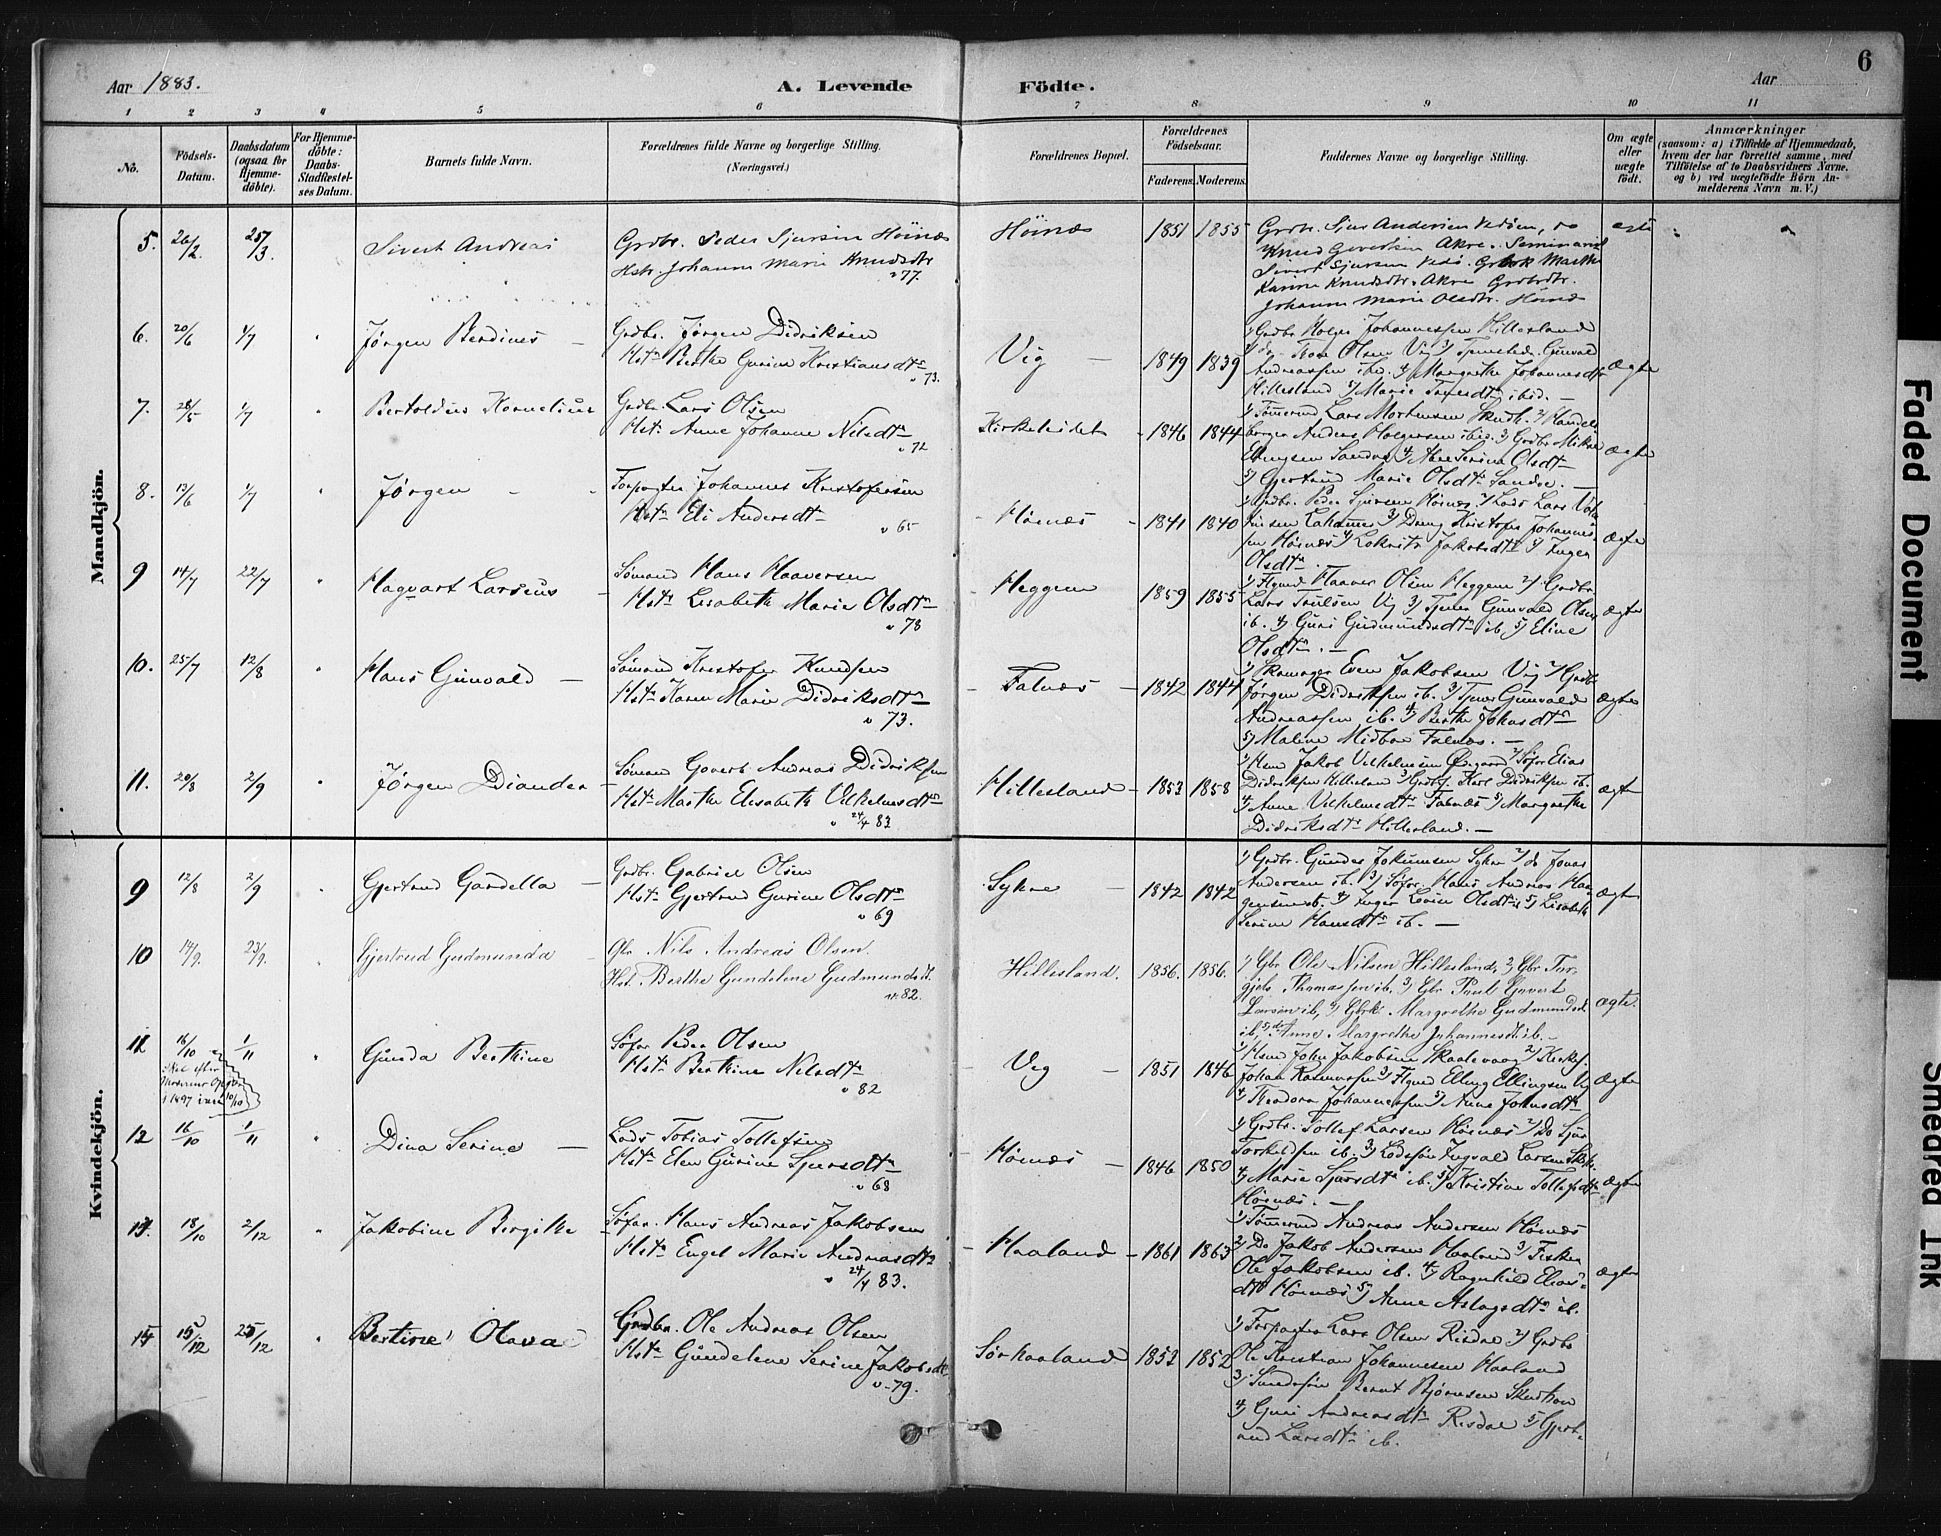 6
Aar 1883.
A. Levende Födte.
Aar
1 2 3 4 5 6 7 8 9 10 11
No.
Födsels-Datum.
Daabsdatum (ogsaa for Hjemme-döbte).
For Hjemme-döbte: Daabs-Stadfæstel-ses Datum.
Barnets fulde Navn.
Forældrenes fulde Navne og borgerlige Stilling.
(Næringsvei.)
Forældrenes Bopæl.
Forældrenes Födselsaar.
Faderens. Moderens.
Faddernes Navne og borgerlige Stilling.
Om ægte eller uægte födt.
Anmærkninger
(saasom: a) i Tilfælde af Hjemmedaab, hvem der har forrettet samme, med Tilföielse af to Daabsvidners Navne. og b) ved uægtefödte Börn An-melderens Navn m. V.)
Mandkjön.
5. 26/2. 25/3. Sivert Andreas
Grdbr. Peder Sjursen Höinæs
Hstr. Johanna Marie Knudsdtr
" 77.
Höinæs 1851 1855
Grdbr. Sjur Andersen Vedöen, do
Knud Govertsen Akre. Seminarist
Sivert Sjursen Vedö. Martha
Karina Knudsdtr. Akre Grdbrdtr.
Johanna Marie Olsdtr. Höinæs
ægte
6. 20/6 1/7 " Jørgen Berdines
Grdbr. Jørgen Didriksen
Hstr Berthe Gurine Kristiansdtr
" 73.
Vig 1849 1839
1) Grdbr Holger Johannessen Hillesland
2) do Tore Olsen Vig 3) Gunvald
Andreassen ibd. 4) Margrethe Johannesdtr
Hillesland 5) Marie ibid.
ægte
7. 28/5 1/7 " Bertoldus Kornelius
Grdbr. Lars Olsen
Hstr Anne Johanne Nilsdtr
" 72
Kirkeleidet 1846 1844
1) Tømmermd Lars Mortensen Skudh. 2) Handels
borger Anders Holgersen ibid. 3) Grdbr Mikal
Ellingsen Sandve 4) Serine Olsdtr
5) Gjertrud Marie Olsdtr Sandve.
ægte
8. 13/6 1/7 " Jørgen
Forpagter Johannes Kristofersen
Hstr Eli Andersdtr
" 65
Høinæs 1841 1840
1) Grdbr. Peder Sjursen Høinæs 2) Lods Lars
3) Dreng Kristofer Johannes-
sen Høinæs 4) Jakobsdtr 5) Inger
Olsdtr.
ægte
9 14/7 22/7 " Hagvart Larseus
Sømand Hans Haaversen
Hstr Lisabeth Marie Olsdtr
" 78
Heggem 1859 1855
1) Haaver Olsen Heggem 2) Grdbr
Lars Trulsen Vig 3) Tjener Gunvald Olsen
ib. 4) Guri Gudmundsdtr ib. 5) Eline
Olsdtr.
ægte
10. 25/7 12/8 " Hans Gunvald
Sømand Kristofer Knudsen
Hstr Karen Marie Didriksdtr
" 73.
Falnæs 1842 1844
1) Skomager Even Jakobsen Vig 2) Grdbr
Jørgen Didriksen ib. 3) Tjener Gunvald
Andreassen ib. 4) Berthe Johnsdtr
5) Malene Midbøe Falnæs.
ægte
11. 20/8 2/9 " Jørgen Diander
Sømand Govert Andreas Didriksen
Hstr Marthe Elisabeth Vilhelmsdtr
" 24/4 83
Hillesland 1853 1858
1) Jakob Vilhelmsen 2) Søfar Elias
Didriksen Hillesland 3) Karl Didriksen ib.
4) Anne Vilhelmsdtr Falnæs 5) Margrethe
Didriksdtr Hillesland.
ægte
Kvindekjön.
9 12/8 2/9 " Gjertrud Gardella
Grdbr. Gabriel Olsen
Hstr Gjertrud Gurine Olsdtr
" 69
Sykne 1842 1842
1) Grdbr. Gunder Jokumsen Sykne 2) do Jonas
Andersen ib. 3) Søfar. Hans Andreas Haa-
gensen ib. 4) Inger Lovise Olsdtr 5) Lisabeth
Serine Hansdtr ib.
ægte
10 14/9. 23/9. Gjertrud Gudmunda
Gbr. Nils Andreas Olsen.
Hst. Berthe Gundelene Gudmundsdt.
82.
Hillesland. 1856. 1856.
1) Gbr Ole Nilsen Hillesland, 2) Gbr Tor-
gjeis Thomassen ib. 3) Gbr Poul Govert
Larsen ib, 4) Gbrk Margrethe Gudmundsd.
ib, 5) Anne Margrethe Johannesdt ib.
ægte.
11 16/10 1/11 " Gunda Berthine
Skal efter
Moderens Opgave
i 1897 være 10/10
Søfar Peder Olsen
Hstr Berthine Nilsdtr
" 82
Vig 1851 1846
1) Hmd John Jakobsen Skaalevaag 2)
Johan Rasmussen 3) Elling Ellingsen Vig
4) Theodora Johannessen 5) Anne Johnsdtr
ægte
12 16/10 1/11 " Dina Serine
Lods Tobias Tollefsen
Hstr Elen Gurine Sjursdtr
" 68
Høinæs 1846 1850
1) Grdbr. Tollef Larsen Høinæs 2) Do Sjur
Torkelsen ib. 3) Lodssøn Ingvald Larsen
4) Marie Sjursdtr ib. 5) Kristine Tollefsdtr
Høinæs.
ægte
18/10 2/12 " Jakobine Bergithe
Søfar. Hans Andreas Jakobsen
Hstr Engel Marie Andreasdtr
" 24/4 83.
Haaland 1861 1863
1) Tømmermd Andreas Andersen Høinæs
2) Do Jakob Andersen Haaland 3) Fisker
Ole Jakobsen ib. 4) Ragnhild Elias-
dtr Høinæs 5) Anne Aslagsdtr ib.
ægte
15/12 25/12 " Bertine Olava
Grdbr. Ole Andreas Olsen
Hstr Gundelene Serine Jakobsdt
" 79.
Sørhaaland 1853 1852
1) Forpagter Lars Olsen Risdal 2) Grdbr
Ole Kristian Johannesen Haaland
3) Bernt Bjørnsen Skudhvn
4) Guri Andreasdtr Risdal 5) Gjert-
rud Larsdtr ib.
Faded Document
Smeared Ink